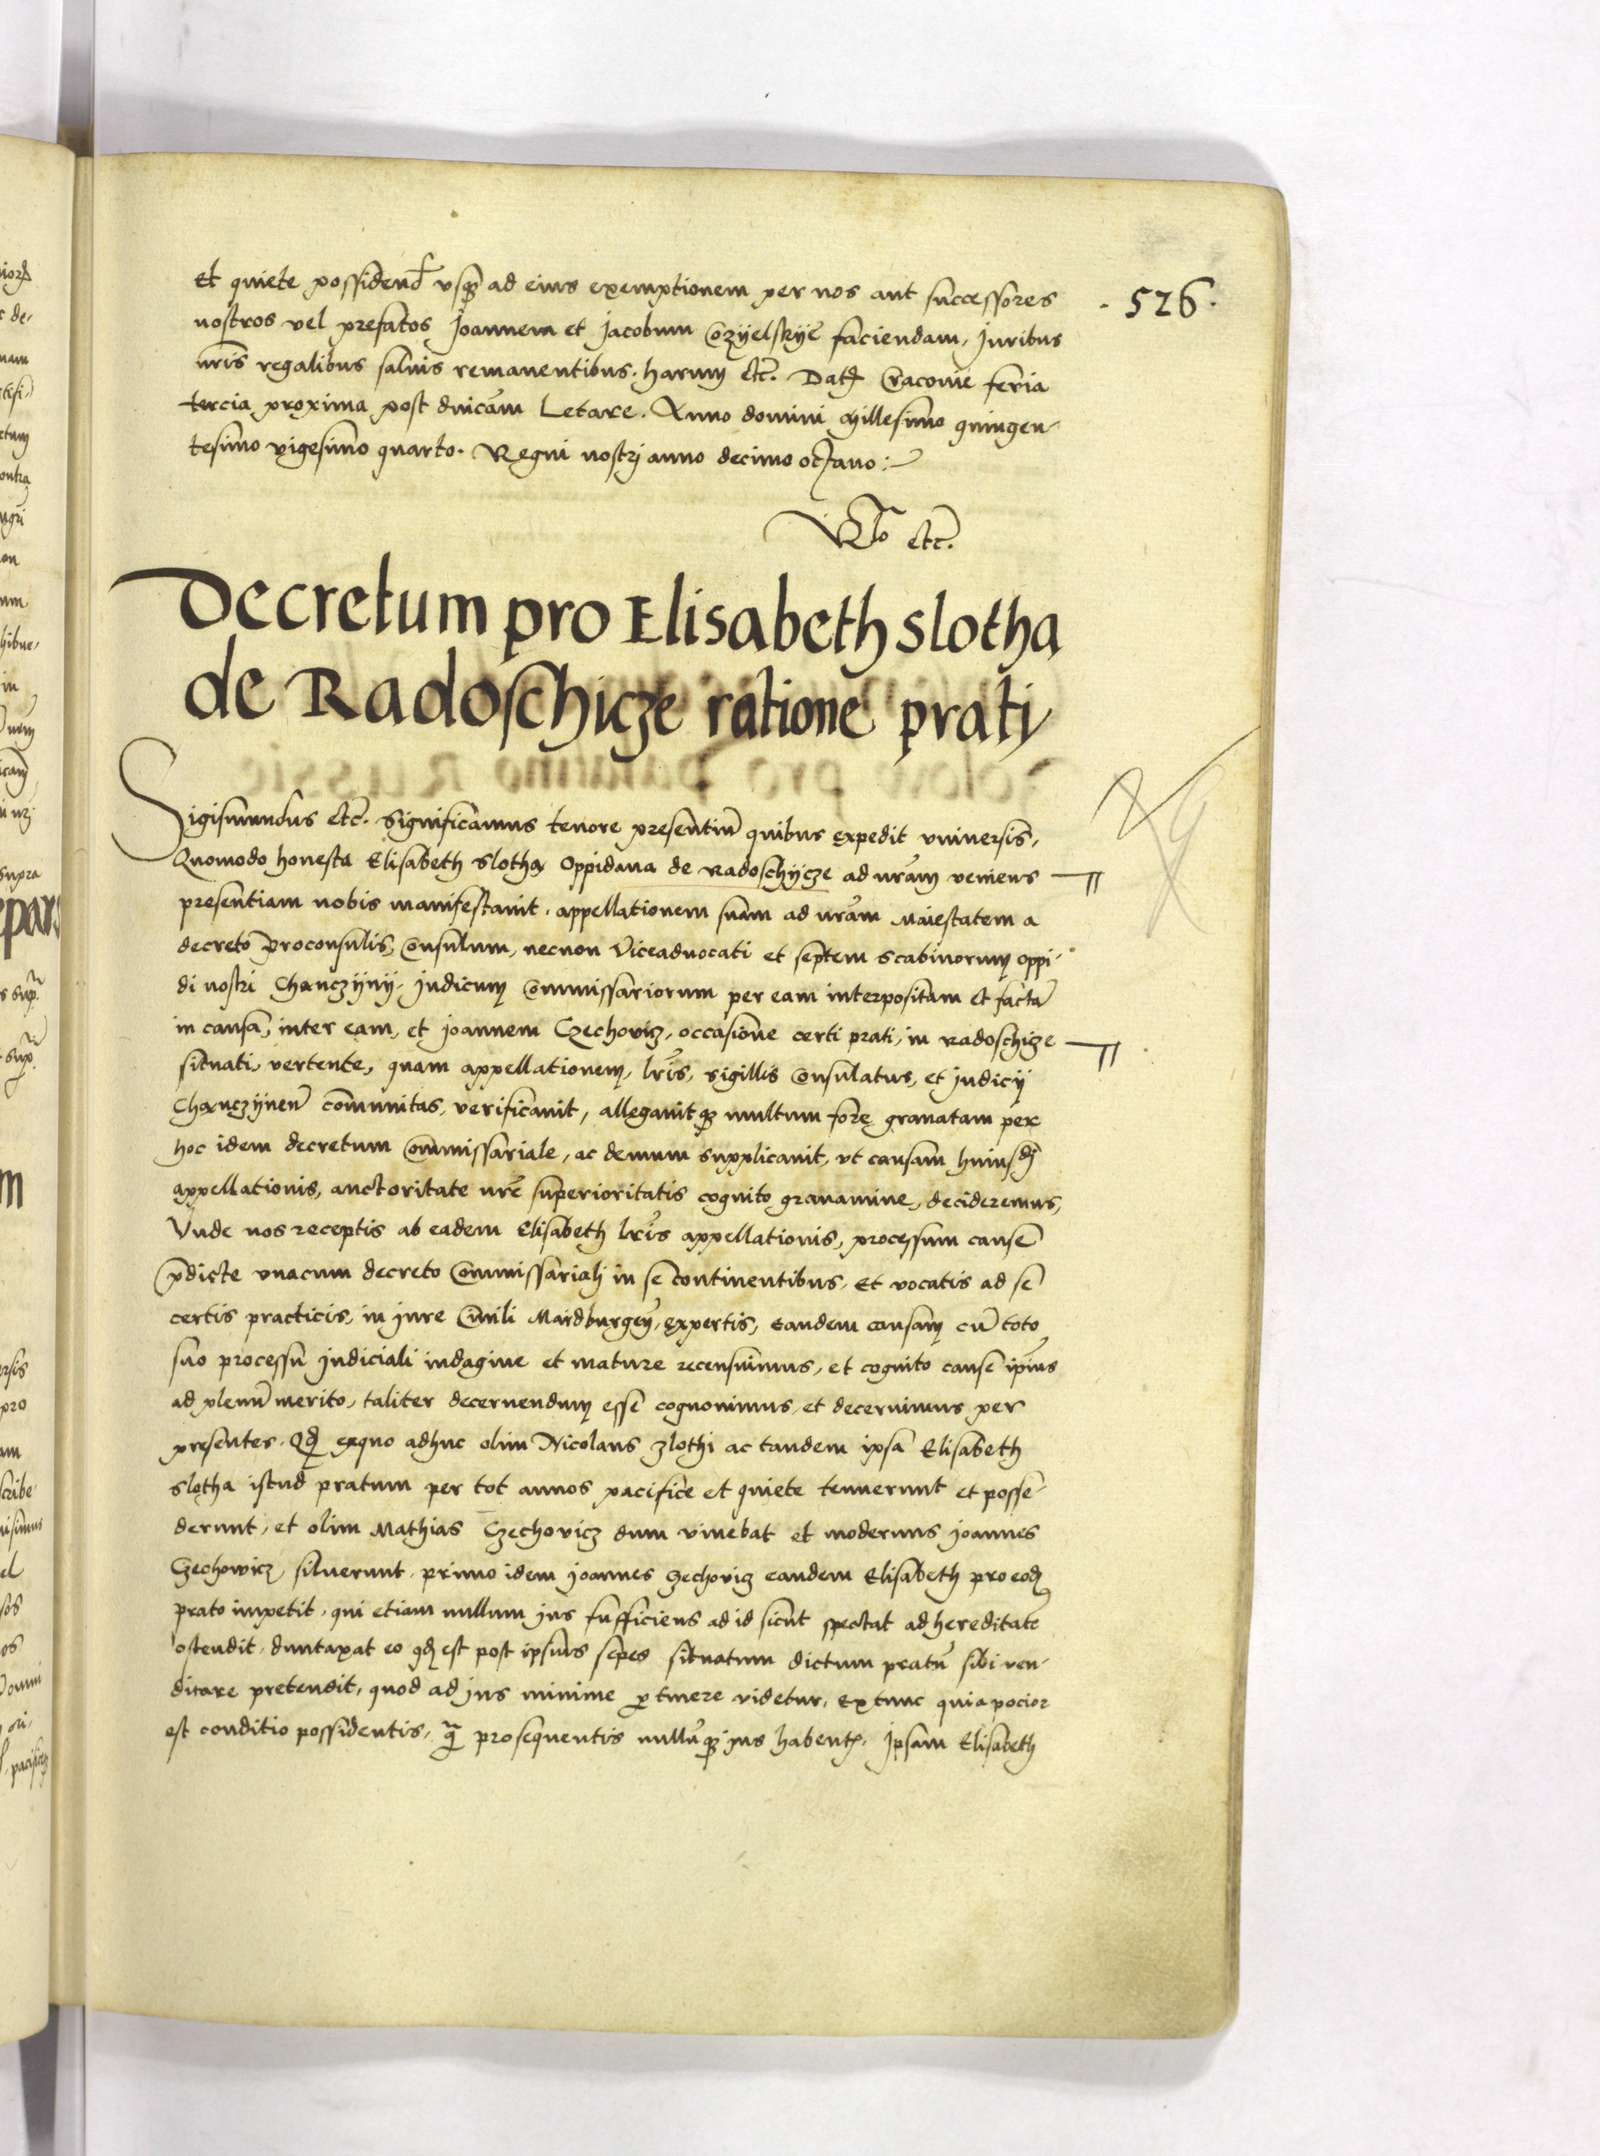 Et quiete possidend usq̃ ad eius exemptionem per nos aut successores
· 526 ·
nostros vel prefatos Joannem et Jacobum Cozyelskÿe faciendam, Juribus
nr̃is regalibus saluis remanentibus. harum etc̃. Dat̃ Cracouie feria
tercia proxima post dnicam Letare. Anno domini Millesimo quingen-
tesimo vigesimo quarto. Regni nostrj anno decimo octauo:
etc̃.
Decretum pro Elisabeth slotha
de Radoschicze ratione prati
Sigismundus etc̃. Significamus tenore presentiũ quibus expedit vniuersis,
Quomodo honesta Elisabeth Slotha Oppidana de Radoschÿcze ad nr̃am veniens
presentiam nobis manifestauit. appellationem suam ad nr̃am Maiestatem a
decreto proconsulis, Consulum, necnon Viceaduocati et septem Scabinorum oppi-
di nostri Chanczÿnÿ, Judicum Commissariorum per eam interpositam et factã
in causa, inter eam, et Joannem Czechovicz, occasione certi prati, in Radoschicze
situati, vertente, quam appellationem, lr̃is, sigillis Consulatus, et Judicÿ
Chanczÿneñ com̃unitas, verificauit, allegauitq̃ multum fore grauatam per
hoc idem decretum Commissariale, ac demum supplicauit, vt causam huiusdj
appellationis, auctoritate nr̃e superioritatis cognito grauamine, decideremus,
Vnde nos receptis ab eadem Elisabeth lr̃is appellationis, processum cause
p̃dicte vnacum decreto Commissarialj in se continentibus, Et vocatis ad se
certis practicis, in jure Ciuili Maidburgeñ, expertis, eandem causam cũ toto
suo processu Judiciali indagine et mature recensuimus, et cognito cause ip̃ius
ad plenũ merito, taliter decernendum esse cognouimus, et decernimus per
presentes. Qd̃ exquo adhuc olim Nicolaus Zlothi ac tandem ipsa Elisabeth
Slotha istud pratum per tot annos pacifice et quiete tenuerunt et posse-
derunt, et olim Mathias Czechovicz dum viuebat et modernus Joannes
Czechowicz, siluerunt, primo idem Joannes Czechovicz eandem Elisabeth pro eod̃
prato impetit, qui etiam nullum jus sufficiens ad id sicut spectat ad hereditate
ostendit, duntaxat eo qd̃ est post ipsius sepes situatum dictum pratũ sibi ven-
dicare pretendit, quod ad jus minime p̱tinere videtur, Extunc quia pocior
est conditio possidentis, q̃ prosequentis nullũq̃ jus habent̃. Ipsam Elisabeth